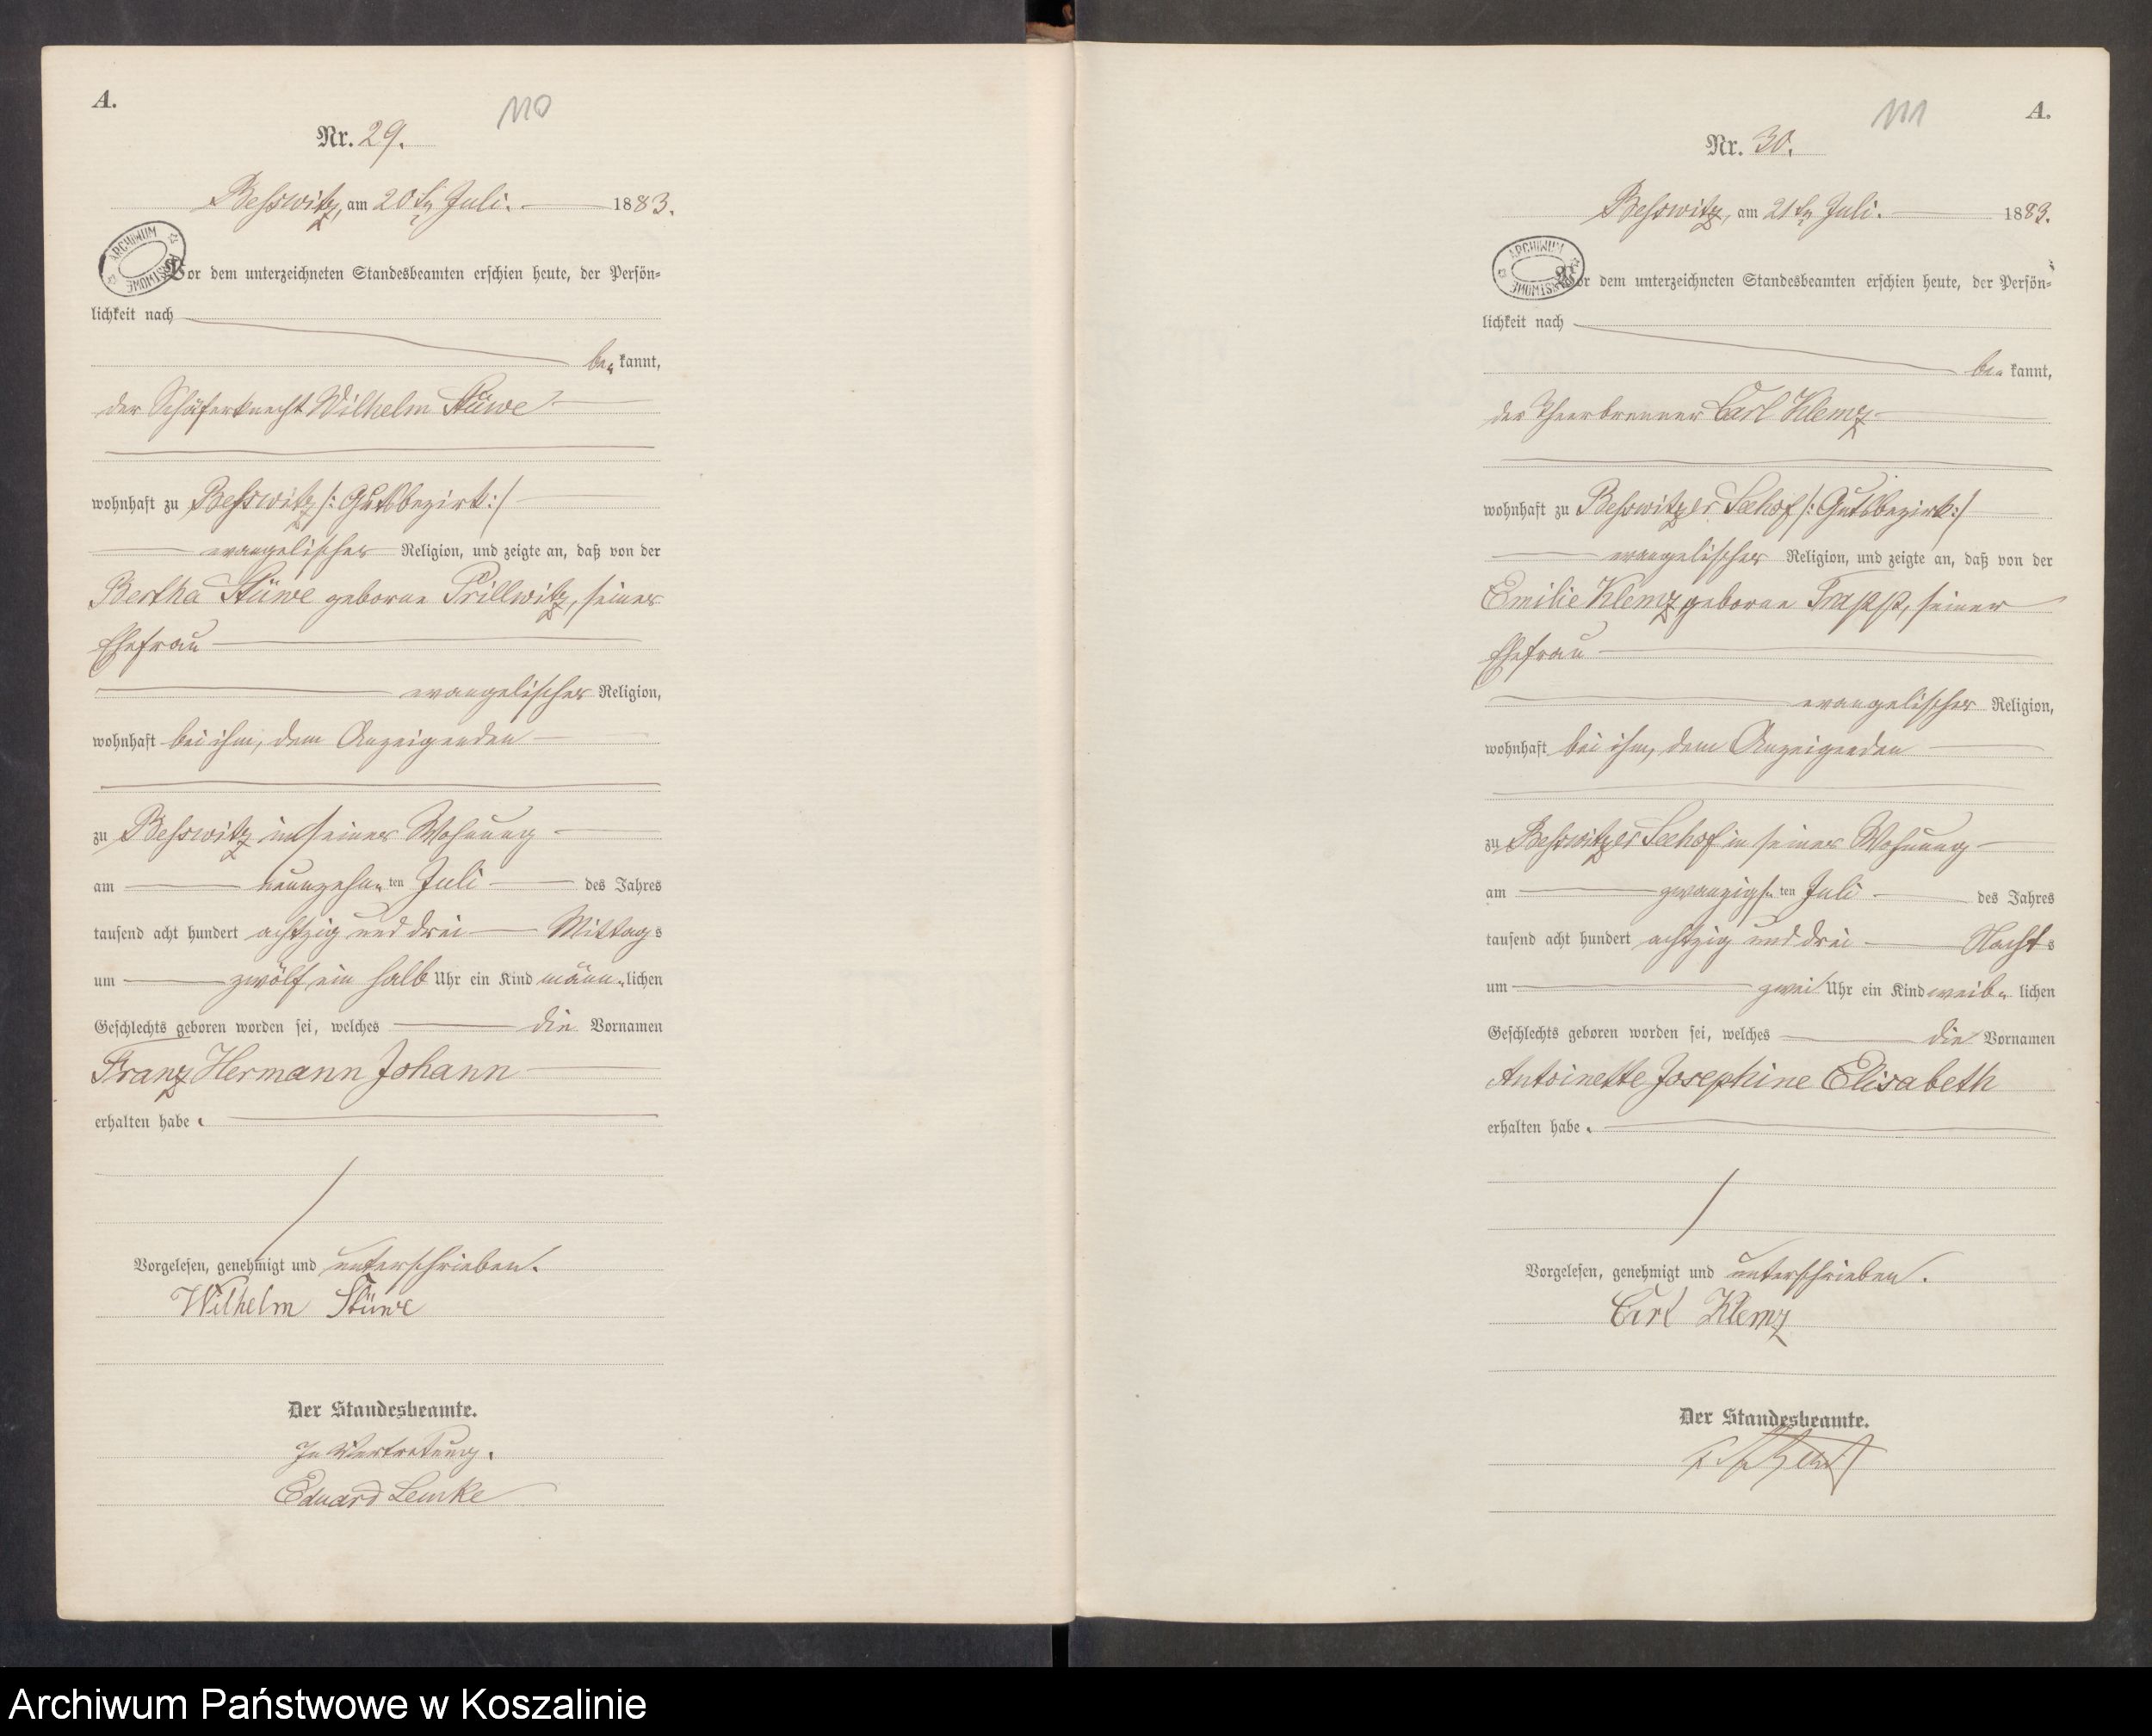 A.
110
Nr. 29.
Besswitz, am 20ten Juli. 1883.
ARCHIWUM PAŃSTWOWE
Vor dem unterzeichneten Standesbeamten erschien heute, der Persön-
lichkeit nach
be kannt,
der Schäferknecht Wilhelm Stüwe
wohnhaft zu Besswitz /: Gutsbezirk :/
evangelischer Religion, und zeigte an, daß von der
Bertha Stüwe geborne Prillwitz, seiner
Ehefrau
evangelischer Religion,
wohnhaft bei ihm, dem Anzeigenden
zu Besswitz in seiner Wohnung
am neunzehnten Juli des Jahres
tausend acht hundert achtzig und drei Mittags
um zwölf ein halb Uhr ein Kind männ lichen
Geschlechts geboren worden sei, welches die Vornamen
Franz Hermann Johann
erhalten habe.
Vorgelesen, genehmigt und unterschrieben.
Wilhelm Stüwe
Der Standesbeamte.
In Vertretung.
Eduard Lemke
111
A.
Nr. 30.
Besswitz, am 21ten Juli. 1883.
ARCHIWUM PAŃSTWOWE
Vor dem unterzeichneten Standesbeamten erschien heute, der Persön-
lichkeit nach
be kannt,
der Theerbrenner Carl Klemz
wohnhaft zu Besswitzer Seehof /: Gutsbezirk :/
evangelischer Religion, und zeigte an, daß von der
Emilie Klemz geborne Trapp, seiner
Ehefrau
evangelischer Religion,
wohnhaft bei ihm, dem Anzeigenden
zu Besswitzer Seehof in seiner Wohnung
am zwanzigsten Juli des Jahres
tausend acht hundert achtzig und drei Nachts
um zwei Uhr ein Kind weib lichen
Geschlechts geboren worden sei, welches die Vornamen
Antoinette Josephine Elisabeth
erhalten habe.
Vorgelesen, genehmigt und unterschrieben.
Carl Klemz
Der Standesbeamte.
Archiwum Państwowe w Koszalinie